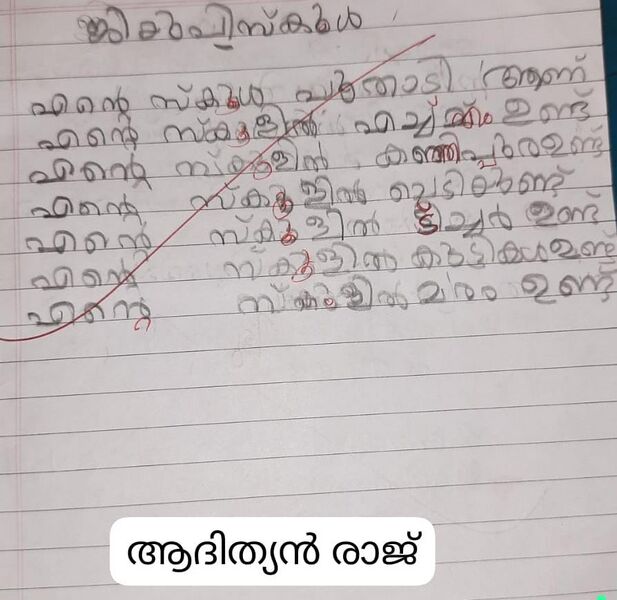 ജിഎൽപിസ്കൂൾ
എന്റെ സ്കൂൾ ആണ്
എന്റെ സ്കൂളിൽ എച്ച് എം ഉണ്ട്
എന്റെ സ്കൂളിൽ കഞ്ഞിപ്പുരഉണ്ട്
എന്റെ സ്കൂളിൽ ചെടിഉണ്ട്
എന്റെ സ്കൂളിൽ ടീച്ചർ ഉണ്ട്
എന്റെ സ്കൂളിൽ കുട്ടികൾഉണ്ട്
എന്റെ സ്കൂളിൽ മരം ഉണ്ട്
ആദിത്യൻ രാജ്